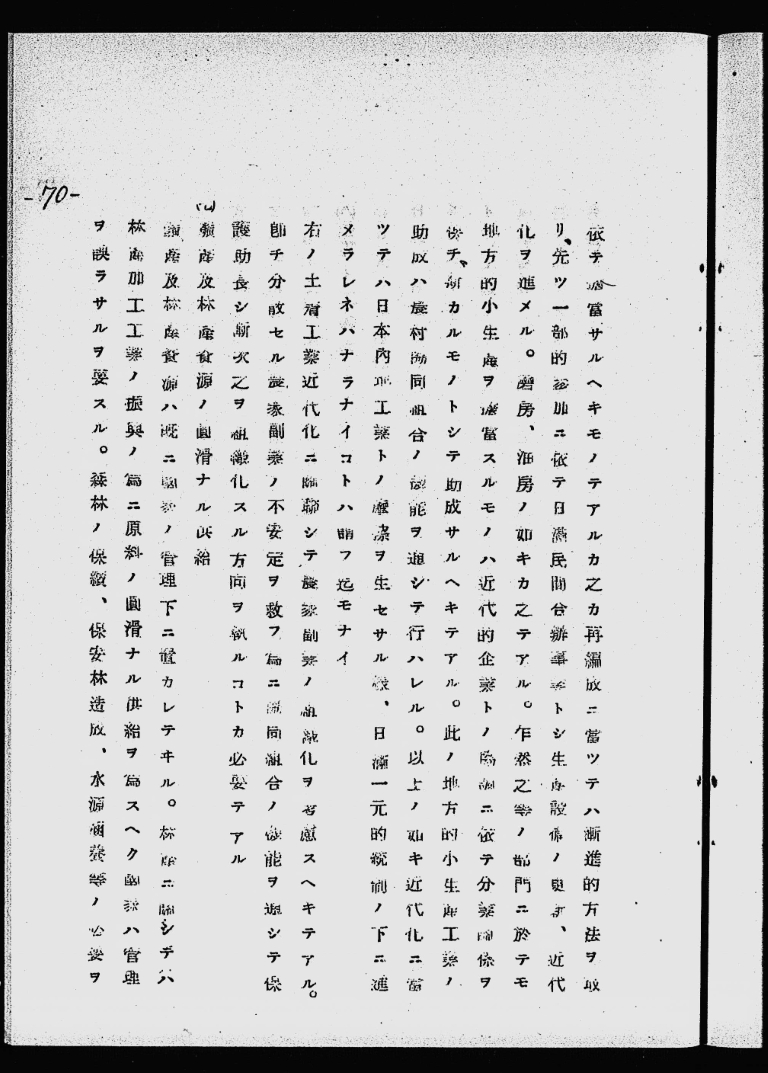 依テ擔當サルヘキモノテアルカ之カ再編成ニ當ツテハ漸進的方法ヲ取
リ、先ツ一部的參加ニ依テ日滿民間合辦事業トシ生産設備ノ更新、近代
化ヲ進メル。磨房、油房ノ如キカ之テアル。乍然之等ノ部門ニ於テモ
地方的小生産ヲ擔當スルモノハ近代的企業トノ協調ニ依テ分業關係ヲ
保チ、新カルモノトシテ助成サルヘキテアル。此ノ地方的小生産工業ノ
助成ハ農村協同組合ノ機能ヲ通シテ行ハレル。以上ノ如キ近代化ニ當
ツテハ日本內地工業トノ摩擦ヲ生セサル樣、日滿一元的統制ノ下ニ進
メラレネハナラナイコトハ謂フ迄モナイ
右ノ土着工業近代化ニ關聯シテ農家副業ノ組織化ヲ考慮スヘキテアル。
卽チ分散セル農家副業ノ不安定ヲ救フ爲ニ協同組合ノ機能ヲ通シテ保
護助長シ漸次之ヲ組織化スル方向ヲ執ルコトカ必要テアル
鑛産及林産資源ノ圓滑ナル供給
鑛産及林産資源ハ旣ニ國家ノ管理下ニ置カレテヰル。林産ニ關シテハ
林産加工工業ノ振興ノ爲ニ原料ノ圓滑ナル供給ヲ爲スヘク國家ハ管理
ヲ誤ラサルヲ要スル。森林ノ保續、保安林造成、水源涵養等ノ必要ヲ
-70-